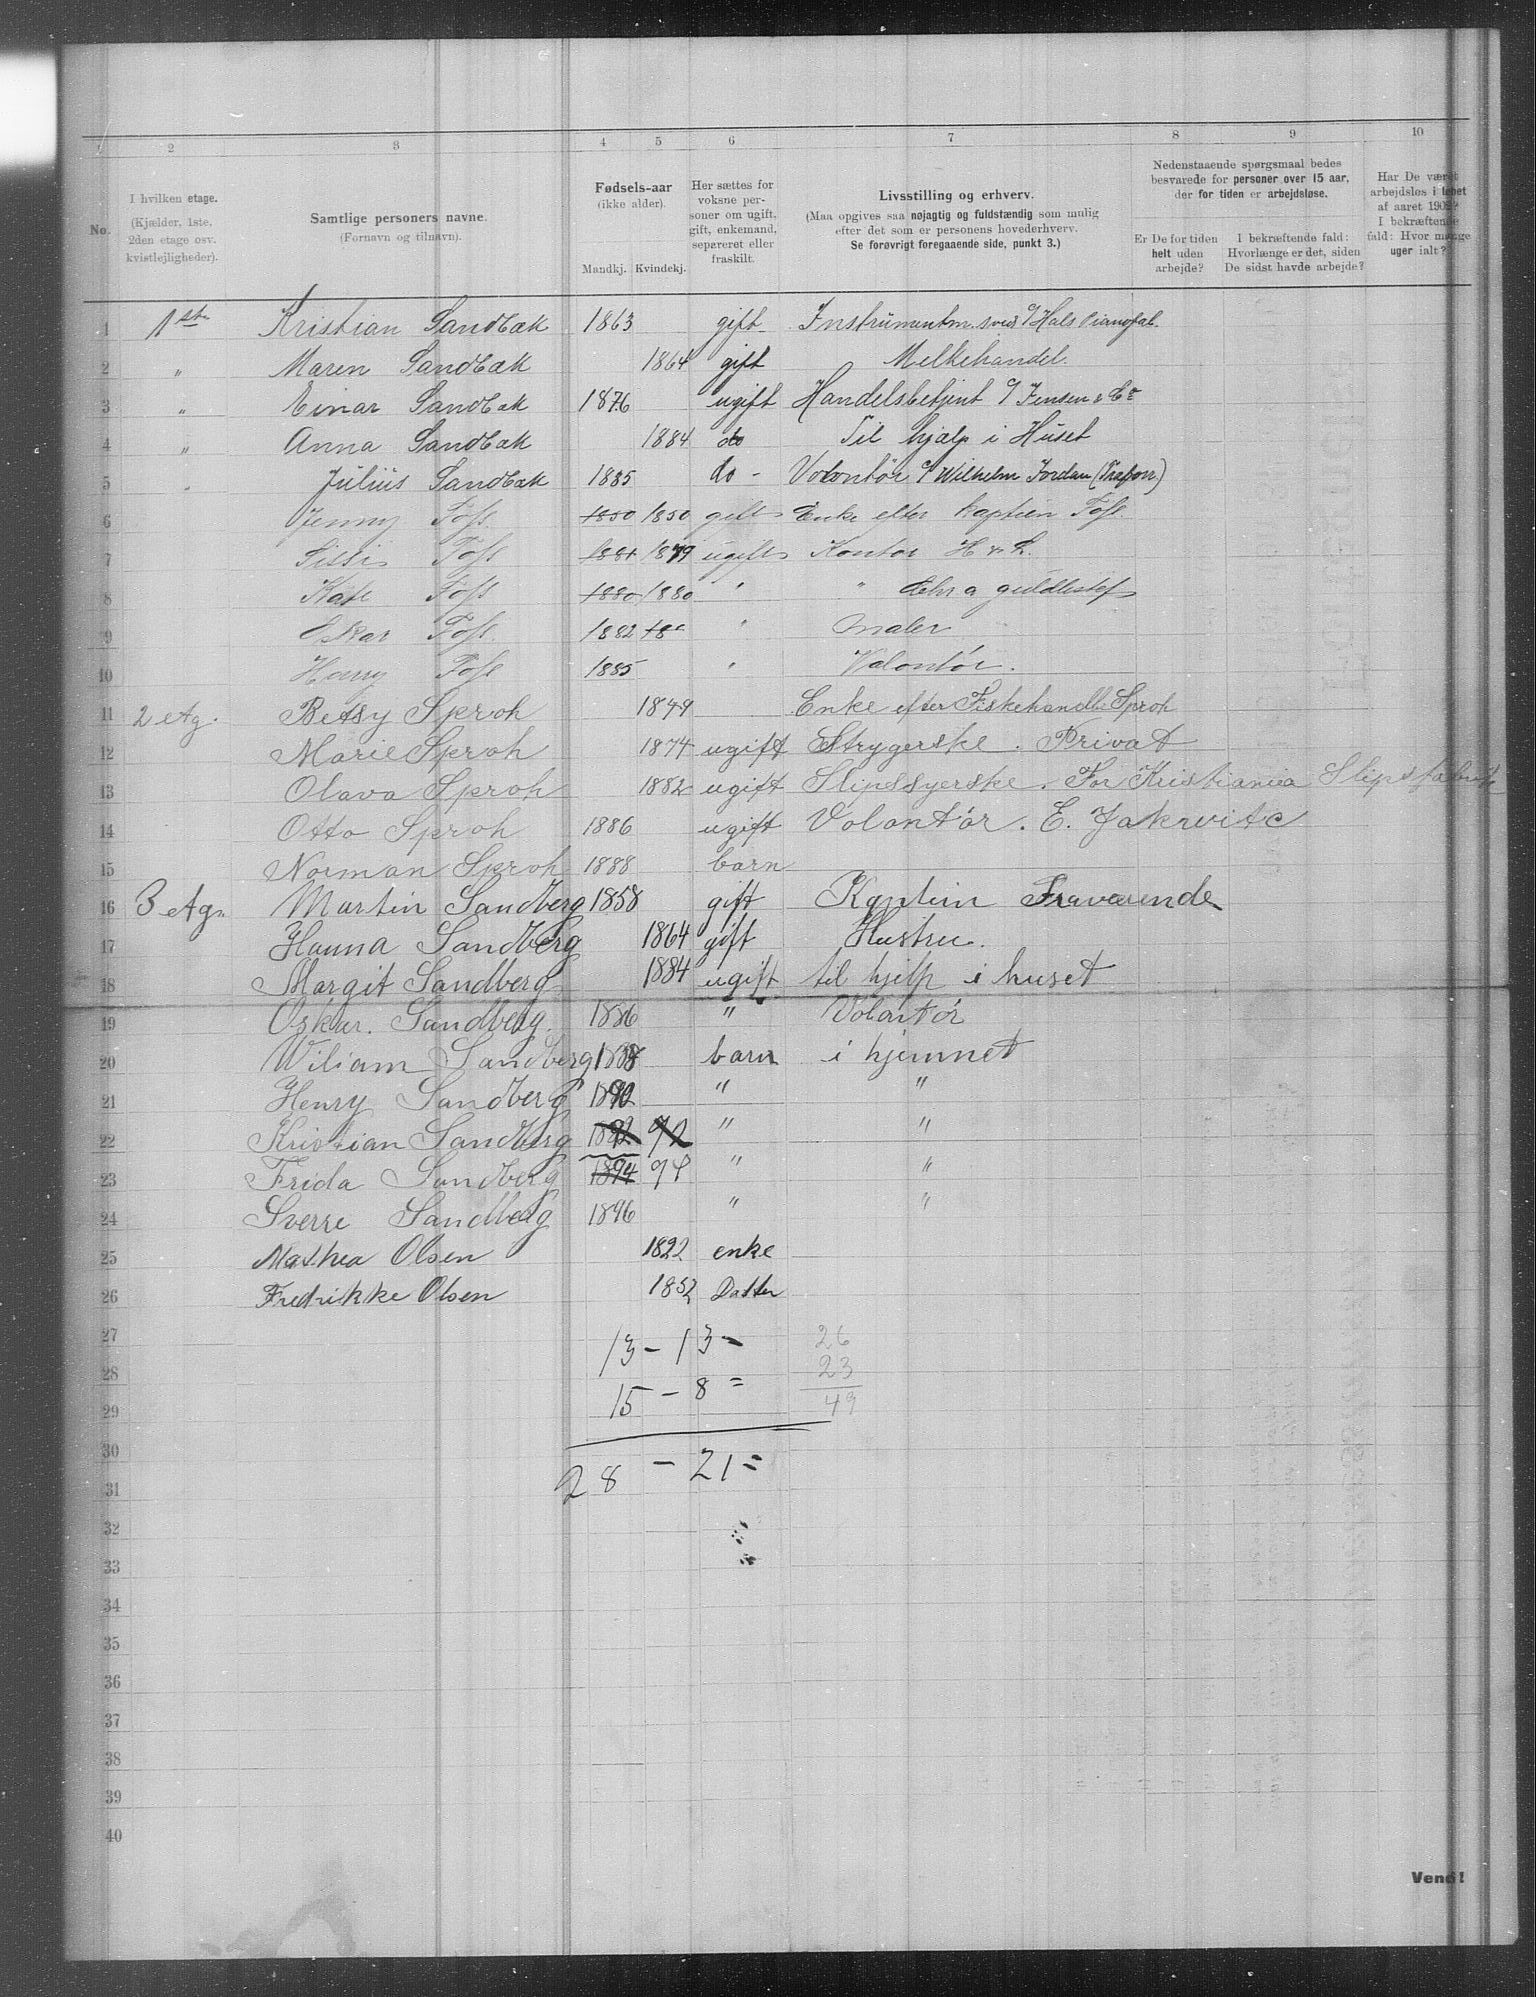 1 2 3 4 5 6 7 8 9 10
No.
I hvilken etage.
(Kjælder, 1ste,
2den etage osv.
kvistleiligheder).
Samtlige personers navne.
(Fornavn og tilnavn).
Fødsels-aar
(ikke alder).
Mandkj. Kvindekj.
Her sættes for
voksne per-
soner om ugift,
gift, enkemand,
separeret eller
fraskilt.
Livsstilling og erhverv.
(Maa opgives saa nøjagtig og fuldstændig som mulig
efter det som er personens hovederhverv.
Se forøvrigt foregaaende side, punkt 3.)
Nedenstaaende spørgsmaal bedes
besvarede for personer over 15 aar,
der for tiden er arbejdsløse.
Er De for tiden
helt uden
arbejde?
I bekræftende fald:
Hvorlænge er det, siden
De sidst havde arbejde?
Har De været
arbejdsløs i løbet
af aaret 190?
I bekræftende
fald: Hvor mange
uger ialt?
1 1st. Kristian Sandbæk 1863 gift Instrumentm. sved c/ Hals Pianofab.
2 " Maren Sandbæk 1864 gift Melkehandel.
3 " Einar Sandbæk 1876 ugift Handelsbetjent c/ Jensen & Co
4 " Anna Sandbæk 1884 do Til hjælp i Huset
5 " Julius Sandbæk 1885 do - Volontør c/ Wilhelm Jordan
6 Jenny Foss 1850 1850 gift Enke efter Kaptein Foss.
7 Sissi Foss 1881 1879 ugift Kontor
8 Kate Foss 1880 1880 " "
9 Oskar Foss 1882 18 " Maler
10 Harry Foss 1885 " Volontør.
11 2 Etg. Betsy Sproh 1849 Enke efter Fiskehandler Sproh
12 Marie Sproh 1874 ugift Strygerske. Privat
13 Olava Sproh 1882 ugift Slipssyerske. For Kristiania Slipsfabrik
14 Otto Sproh 1886 ugift Volontør. E. Jakrvitc
15 Norman Sproh 1888 barn
16 3 Etg. Martin Sandberg 1858 gift Kaptein Fraværende
17 Hanna Sandberg 1864 gift Hustru.
18 Margit Sandberg 1884 ugift til hjelp i huset
19 Oskar. Sandberg. 1886 " Volontør
20 Wiliam Sandberg 1888 barn i hjemmet
21 Henry Sandberg 1890 " "
22 Kristian Sandberg 1892 92 " "
23 Frida Sandberg 1894 94 " "
24 Sverre Sandberg 1896 " "
25 Mathea Olsen 1822 enke
26 Fredrikke Olsen 1852 Datter
27 13 - 13 - 26
28 23
29 15 - 8 = 49
30
31 28 - 21 =
32
33
34
35
36
37
38
39
40
Vend!